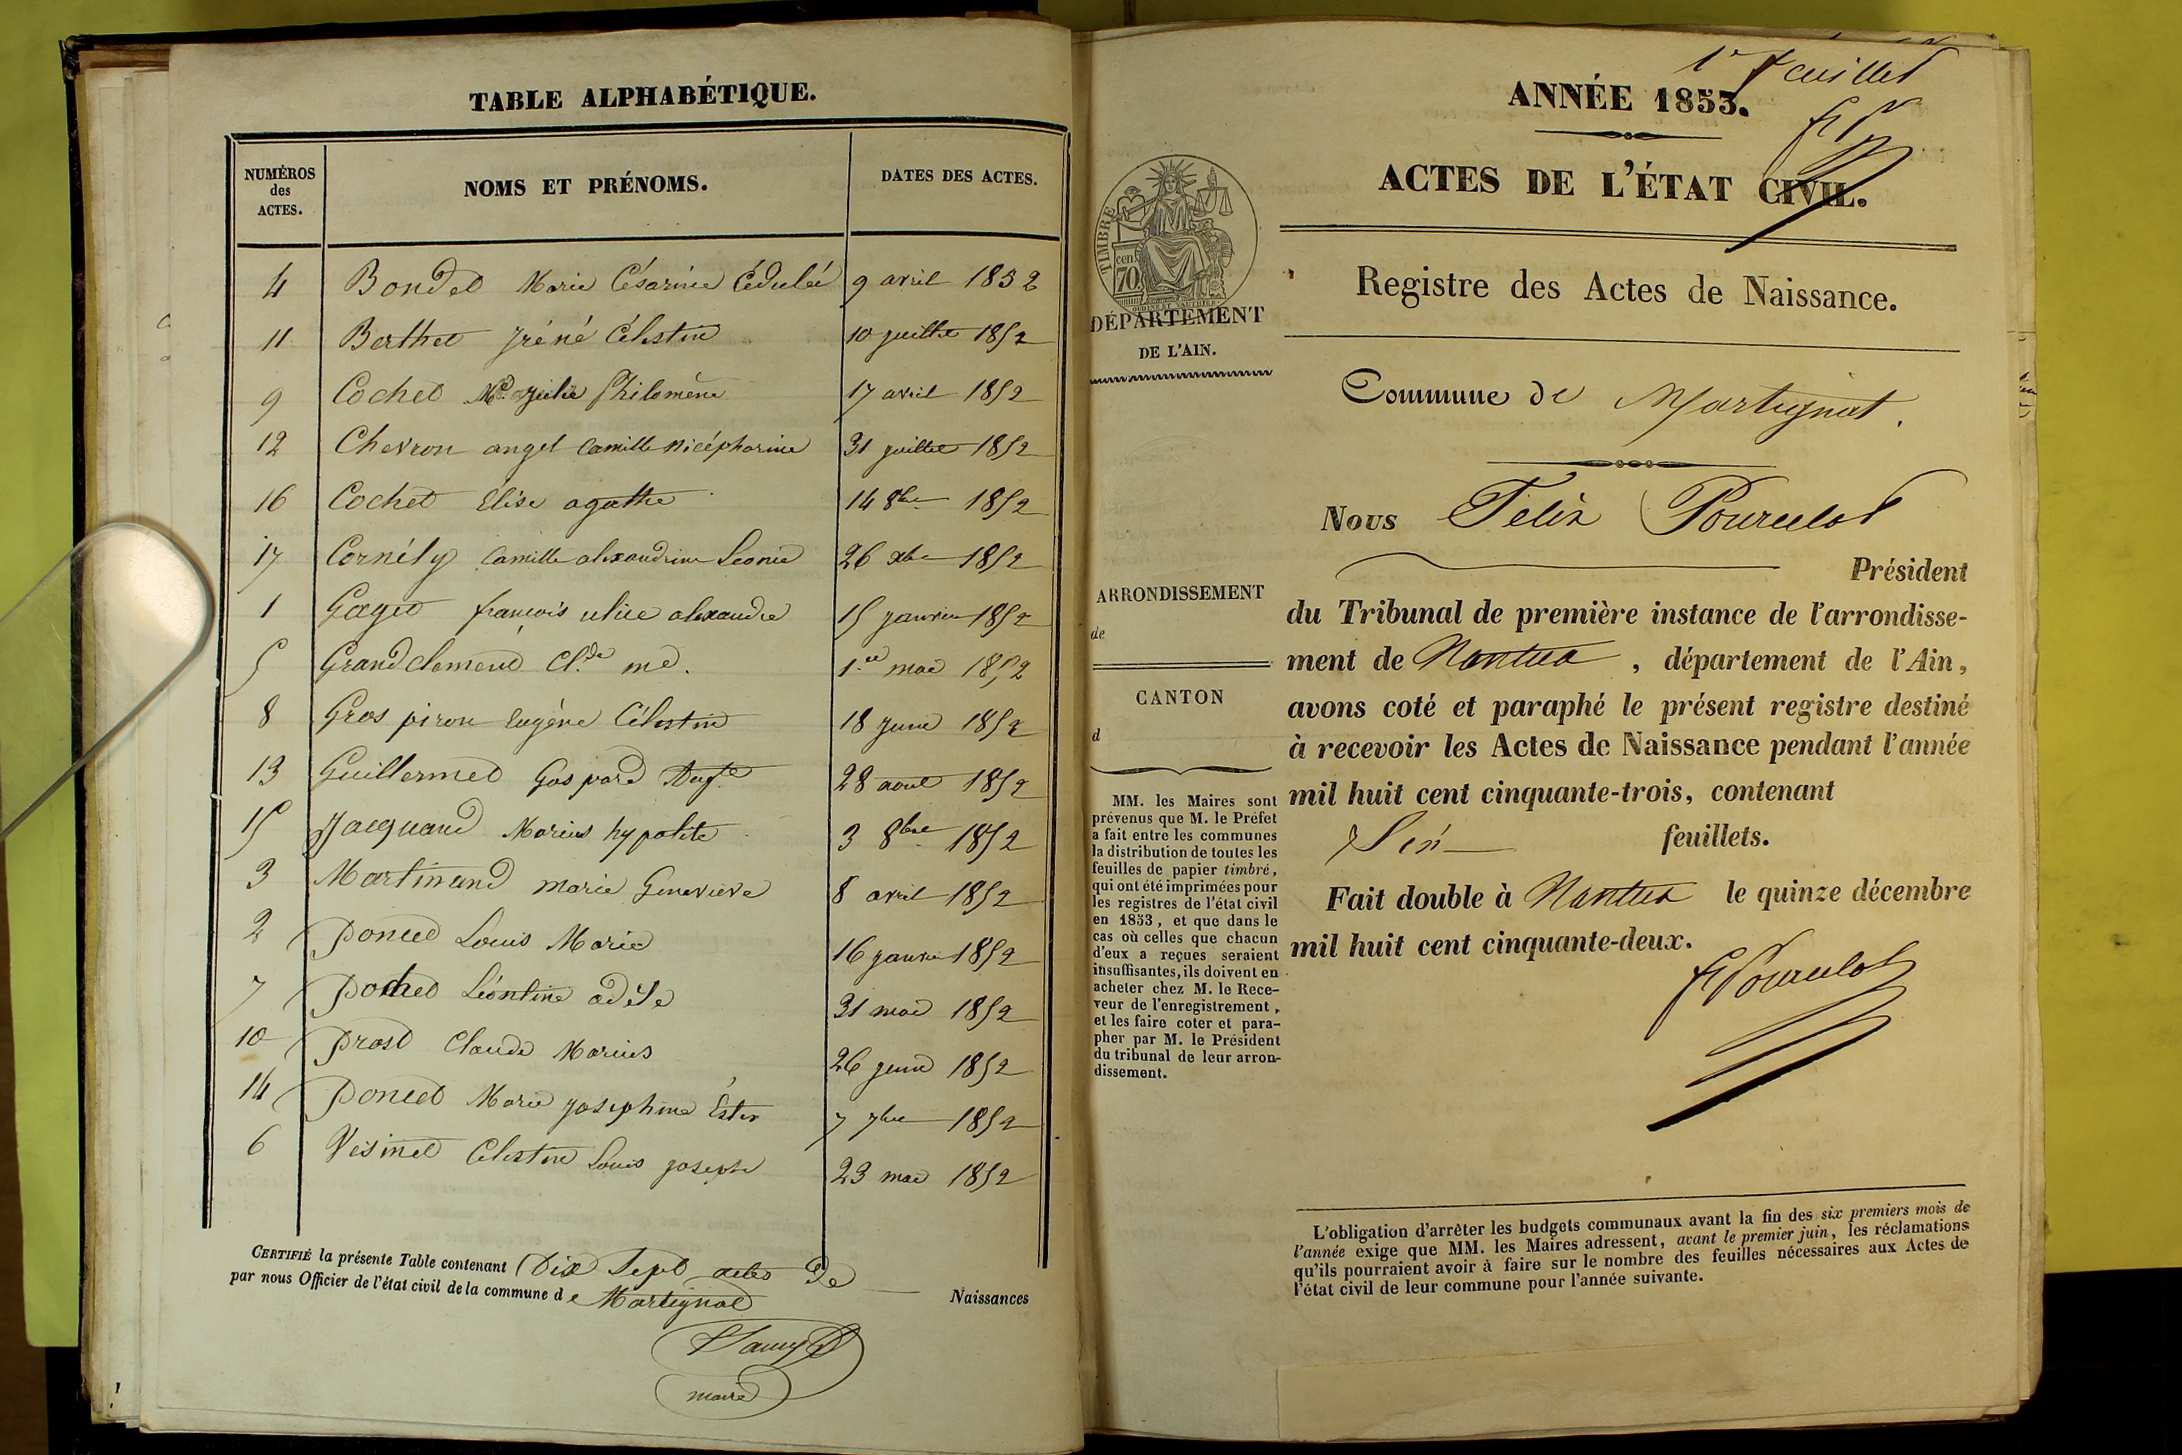 TABLE ALPHABÉTIQUE.
NUMÉROS des ACTES. NOMS ET PRÉNOMS. DATES DES ACTES.
4 Bondet Marie Césarine 9 avril 1852
11 Berthet Iréné Célestin 10 juillet 1852
9 Cochet Julie Philomène 17 avril 1852
12 Chevron angel Camille Nicéphorine 31 juillet 1852
16 Cochet Elise agathe 14 8bre 1852
17 Cornély Camille alexandrine Léonie 26 xbre 1852
1 Goget françois ulice alexandre 15 janvier 1852
5 Grandclement Cl.de me. 1.er mai 1852
8 Gros piron Eugène Célestin 18 juin 1852
13 Guillermet Gaspard Aug.te 28 aout 1852
15 Jacquand Marius hypolite 3 8bre 1852
3 Martinand marie Geneviève 8 avril 1852
2 poncet Louis Marie 16 janvier 1852
7 pochet Léontine adèle 31 mai 1852
10 prost Claude Marius 26 juin 1852
14 poncet Marie josephine Ester 7 7bre 1852
6 Vesinet Celestin Louis joseph 23 mai 1852
CERTIFIÉ la présente Table contenant Dix Sept actes De Naissances
par nous Officier de l'état civil de la commune de Martignat
maire
1er feuillet
ANNÉE 1853.
ACTES DE L'ÉTAT CIVIL.
TIMBRE
70 cen.
DÉPARTEMENT
DE L'AIN.
Registre des Actes de Naissance.
Commune de Martignat.
Nous Félix Pourcelot
Président
du Tribunal de première instance de l'arrondisse-
ment de Nantua, département de l'Ain,
avons coté et paraphé le présent registre destiné
à recevoir les Actes de Naissance pendant l'année
mil huit cent cinquante-trois, contenant
feuillets.
Fait double à Nantua le quinze décembre
mil huit cent cinquante-deux.
F Pourcelot
ARRONDISSEMENT
de
CANTON
d
MM. les Maires sont
prévenus que M. le Préfet
a fait entre les communes
la distribution de toutes les
feuilles de papier timbré,
qui ont été imprimées pour
les registres de l'état civil
en 1853, et que dans le
cas où celles que chacun
d'eux a reçues seraient
insuffisantes, ils doivent en
acheter chez M. le Rece-
veur de l'enregistrement,
et les faire coter et para-
pher par M. le Président
du tribunal de leur arron-
dissement.
L'obligation d'arrêter les budgets communaux avant la fin des six premiers mois de
l'année exige que MM. les Maires adressent, avant le premier juin, les réclamations
qu'ils pourraient avoir à faire sur le nombre des feuilles nécessaires aux Actes de
l'état civil de leur commune pour l'année suivante.